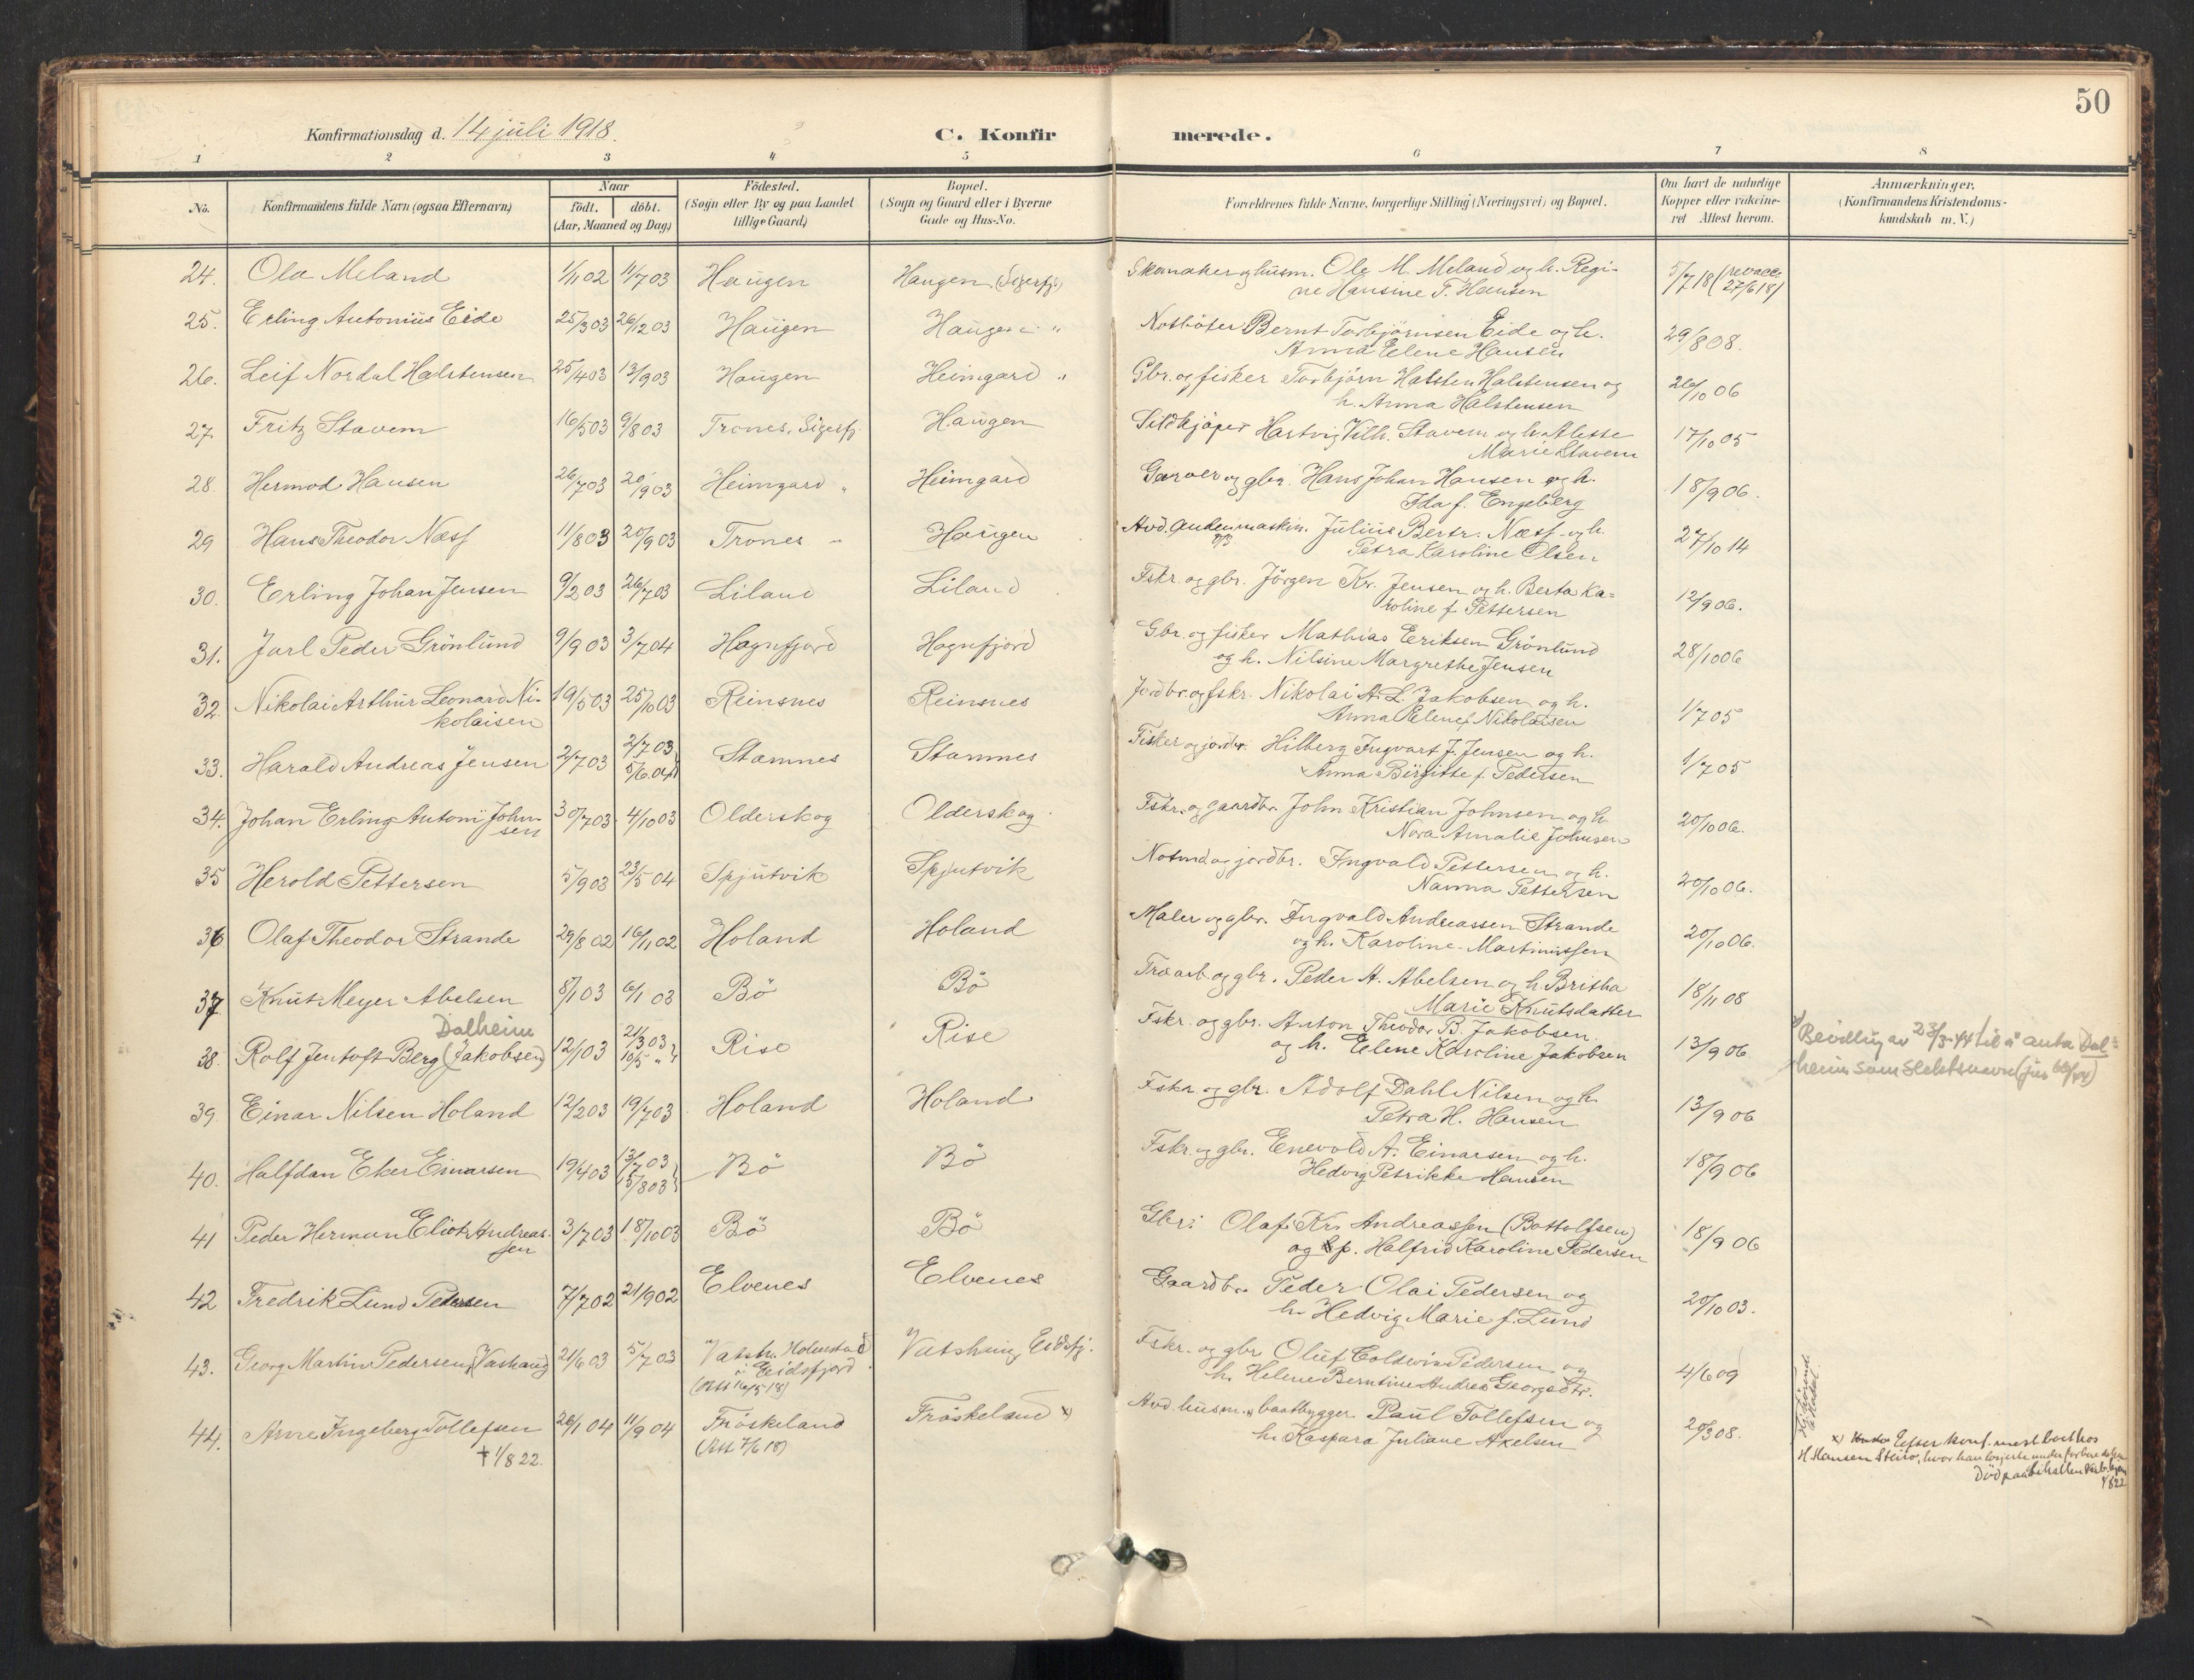 50
Konfirmationsdag d. 14 juli 1918.
C. Konfirmerede.
1 2 3 4 5 6 7 8
No.
Konfirmandens fulde Navn (ogsaa Efternavn)
Naar
födt. döbt.
(Aar, Maaned og Dag)
Födested.
(Sogn eller By og paa Landet
tillige Gaard)
Bopæl.
(Sogn og Gaard eller i Byerne
Gade og Hus-No.
Forældrenes fulde Navne, borgerlige Stilling (Næringsvei) og Bopæl.
Om havt de naturlige
Kopper eller vakcine-
ret Attest herom.
Anmærkninger.
(Konfirmandens Kristendoms-
kundskab m. V.)
24. Ola Meland 1/11 02 11/7 03 Haugen Haugen (Sigerfj.) Skomaker og husm. Ole M. Meland og h. Regi-
ne Hansine T. Hansen 5/7 18 (revacc. 27/6 18)
25. Erling Antonius Eide 25/3 03 26/12 03 Haugen Haugen " Notböter Bernt Torbjörnsen Eide og h.
Anna Elene Hansen 29/8 08.
26. Leif Nordal Halstensen 25/4 03 13/9 03 Haugen Heimgard " Gbr. og fisker Torbjörn Halsten Halstensen og
h. Anna Halstensen 26/10 06
27. Fritz Stavem 16/5 03 9/8 03 Trones, Sigerfj. Haugen Sildkjöper Hartvig Vilh. Stavem og h. Alette
Marie Stavem 17/10 05
28. Hermod Hansen 26/7 03 20/9 03 Heimgard " Heimgard Garver og gbr. Hans Johan Hansen og h.
Ida f. Engeberg 18/9 06.
29 Hans Theodor Næss 11/8 03 20/9 03 Trones " Haugen Avd. andenmaskin. Julius Bertr. Næss og h.
Petra Karoline Olsen 27/10 14
30. Erling Johan Jensen 9/2 03 26/7 03 Liland Liland Fskr. og gbr. Jörgen Kr. Jensen og h. Berta Ka=
roline f. Pettersen 12/9 06.
31. Jarl Peder Grönlund 9/9 03 3/7 04 Hognfjord Hognfjord Gbr. og fisker Mathias Eriksen Grönlund
og h. Nilsine Margrethe Jensen 28/10 06
32. Nikolai Arthur Leonard Ni-
kolaisen 19/5 03 25/10 03 Reinsnes Reinsnes Jordbr. og fskr. Nikolai A. L. Jakobsen og h.
Anna Elene f. Nikolaisen 1/7 05
33. Harald Andreas Jensen 2/7 03 2/7 03
5/6 04 Stamnes Stamnes Fisker og jordbr. Hilberg Ingvart J. Jensen og h.
Anna Birgitte f. Pedersen 1/7 05
34. Johan Erling Antoni John-
sen 30/7 03. 4/10 03 Olderskog Olderskog. Fskr. og gaardbr. John Kristian Johnsen og h.
Nora Amalie Johnsen 20/10 06.
35 Herold Pettersen 5/9 03 23/5 04 Spjutvik Spjutvik Notmd. og jordbr. Ingvald Pettersen og h.
Nanna Pettersen 20/10 06.
36 Olaf Theodor Strande 29/8 02 16/11 02 Holand Holand Maler og gbr. Ingvald Andreassen Strande
og h. Karoline Martinussen 20/10 06.
37 Knut Meyer Abelsen 8/1 03 6/1 03 Bö Bö Træarb. og gbr. Peder A. Abelsen og h. Britha
Marie Knutsdatter 18/11 08
Dalheim
38. Rolf Jentoft Berg (Jakobsen) 12/1 03 21/3 03
10/5 " Rise Rise Fskr. og gbr. Anton Theodor B. Jakobsen
og h. Elene Karoline Jakobsen 13/9 06 x) Bevilling av 23/3-44 til å anta Dal=
heim som slektsnavn (jnr 66/44)
39. Einar Nilsen Holand 12/2 03 19/7 03. Holand Holand Fskr. og gbr. Adolf Dahl Nilsen og h.
Petra H. Hansen 13/9 06
40. Halfdan Eker Einarsen 19/4 03 13/7 03
15/8 03 Bö Bö Fskr. og gbr. Enevold A. Einarsen og h.
Hedvig Petrikke Hansen 18/9 06
41 Peder Herman Eliot Andreas-
sen 3/7 03 18/10 03 Bö Bö Gbr. Olaf Kr. Andreassen (Bottolfsen)
og p. Halfrid Karoline Pedersen 18/9 06
42 Fredrik Lund Pedersen 7/7 02 21/9 02 Elvenes Elvenes Gaardbr. Peder Olai Pedersen og
h. Hedvig Marie f. Lund 20/10 03.
43. Georg Martin Pedersen (Vashaug) 21/6 03 5/7 03 Vatsh. Holmstad
i Eidsfjord
(Att 16/5 18) Vatshaug, Eidsfj. Fskr. og gbr. Oluf Coldevin Pedersen og
h. Helene Berntine Andrea Georgsdtr. 4/6 09
44. Arne Ingeberg Tollefsen 26/1 04 11/9 04 Fröskeland
(Att 7/6 18) Fröskeland x) Avd. husm. og baatbygger Paul Tollefsen og
h. Kaspara Juliane Axelsen 20/3 08.
† 1/8 22.
x) Efter konf. mest bodd hos
H. Hansen Steiro, hvor han losjerte under forberedelsen
Död paa
1/8 22